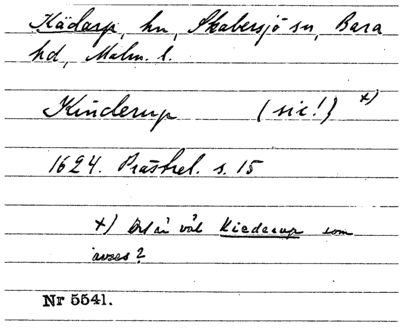 Kädarp, hn, Skabersjö sn, Bara
hd, Malm. l.
Kinderup (sic!) +)
1624. Prästrel. s. 15
+) Det är väl Kiederup som
avses?
Nr 5541.